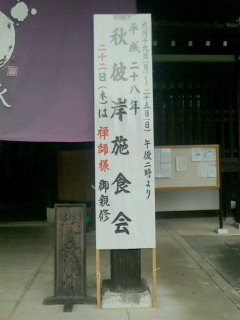 九月十九日(月)~二十五日(日)午後二時より
平成二十八年
秋彼岸施食会
二十二日(木)は禅師様御親修
水